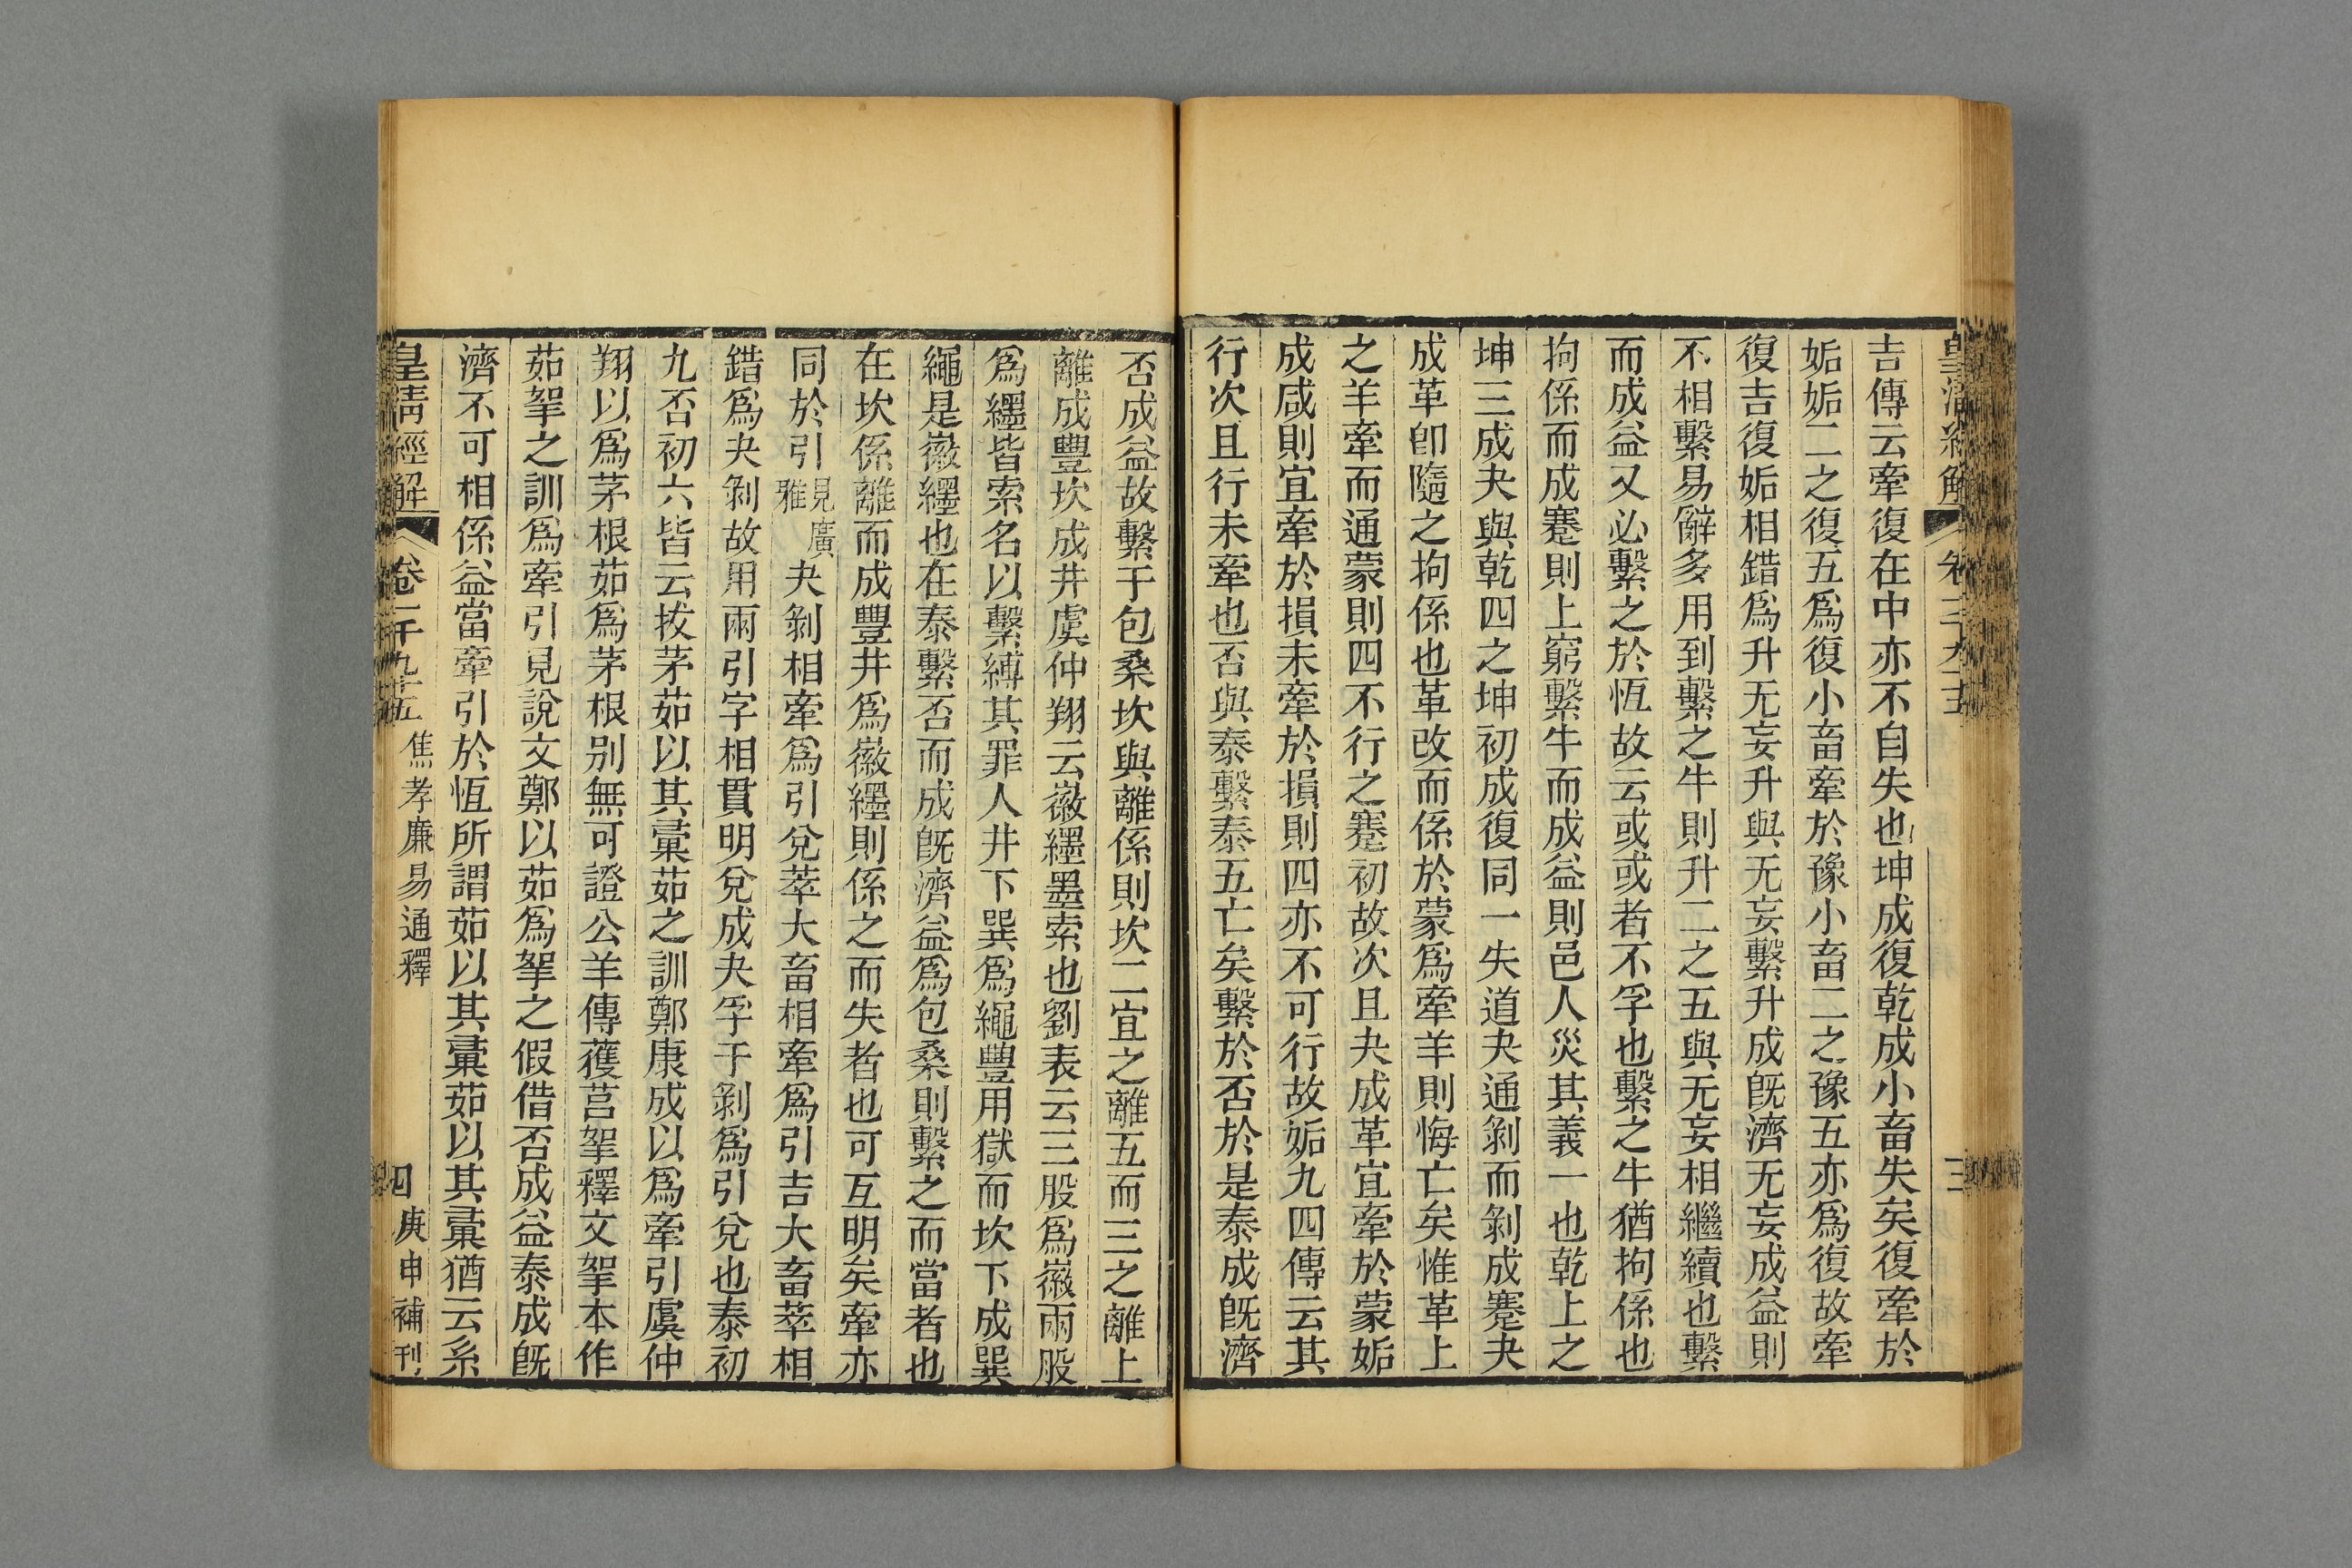 吉傳云牽復在中亦不自失也坤成復乾成小畜失矣復牽於
姤姤二之復五爲復小畜牽於豫小畜二之豫五亦爲復故牽
復吉復姤相錯爲升无妄升與无妄繫升成旣濟无妄成益則
不相繫易辭多用到繫之牛則升二之五與无妄相繼續也繫
而成益又必繫之於恆故云或或者不孚也繫之牛猶拘係也
拘係而成蹇則上窮繫牛而成益則邑人災其義一也乾上之
坤三成夬與乾四之坤初成復同一失道夬通剝而剝成蹇夬
成革卽隨之拘係也革改而係於蒙爲牽羊則悔亡矣惟革上
之羊牽而通蒙則四不行之蹇初故次且夬成革宜牽於蒙姤
成咸則宜牽於損未牽於損則四亦不可行故姤九四傳云其
行次且行未牽也否與泰繫泰五亡矣繫於否於是泰成旣濟
否成益故繫于包桑坎與離係則坎二宜之離五而三之離上
離成豐坎成井虞仲翔云徽纆墨索也劉表云三股爲徽兩股
爲纆皆索名以繫縛其罪人井下巽爲繩豐用獄而坎下成巽
繩是徽纆也在泰繫否而成旣濟益爲包桑則繫之而當者也
在坎係離而成豐井爲徽纆則係之而失者也可互明矣牽亦
同於引見廣雅夬剝相牽爲引兌萃大畜相牽爲引吉大畜萃相
錯爲夬剝故用兩引字相貫明兌成夬孚于剝爲引兌也泰初
九否初六皆云拔茅茹以其彙茹之訓鄭康成以爲牽引虞仲
翔以爲茅根茹爲茅根別無可證公羊傳蒦莒挐釋文挐本作
茹挐之訓爲牽引見說文鄭以茹爲挐之假借否成益泰成旣
濟不可相係益當牽引於恆所謂茹以其彙茹以其彙猶云系
皇清經解 卷一千九十五 焦孝廉易通釋 四 庚申補刊